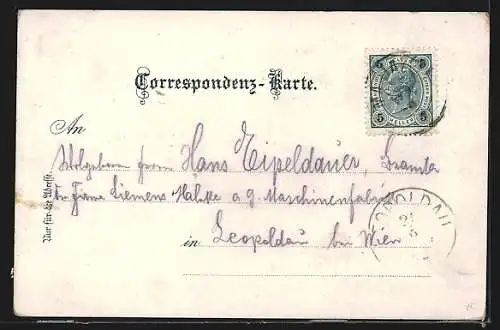 Correspondenz-Karte.
5 5
An
Wolgeboren Herrn Hans Eipeldauer, Beamter
der Firma Siemens Halske a. g. Maschinenfabrik
in Leopoldau bei Wien
Nur für die Adresse.
LEOPOLDAU
21